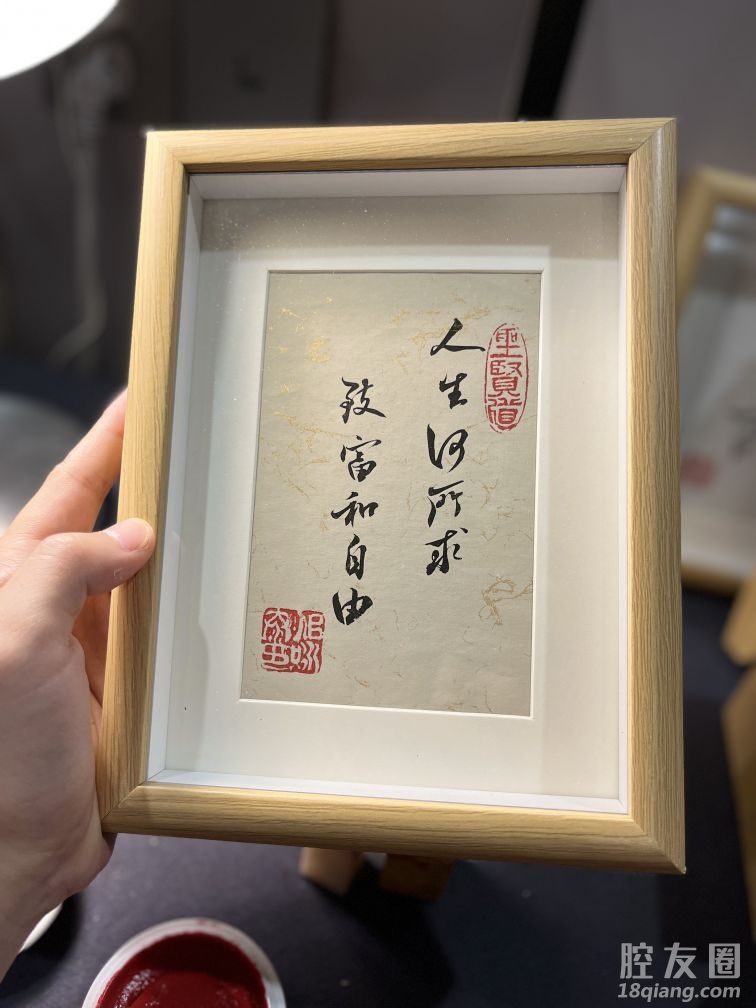 人生何所求
致富和自由
聖賢道
腔友圈
18qiang.com